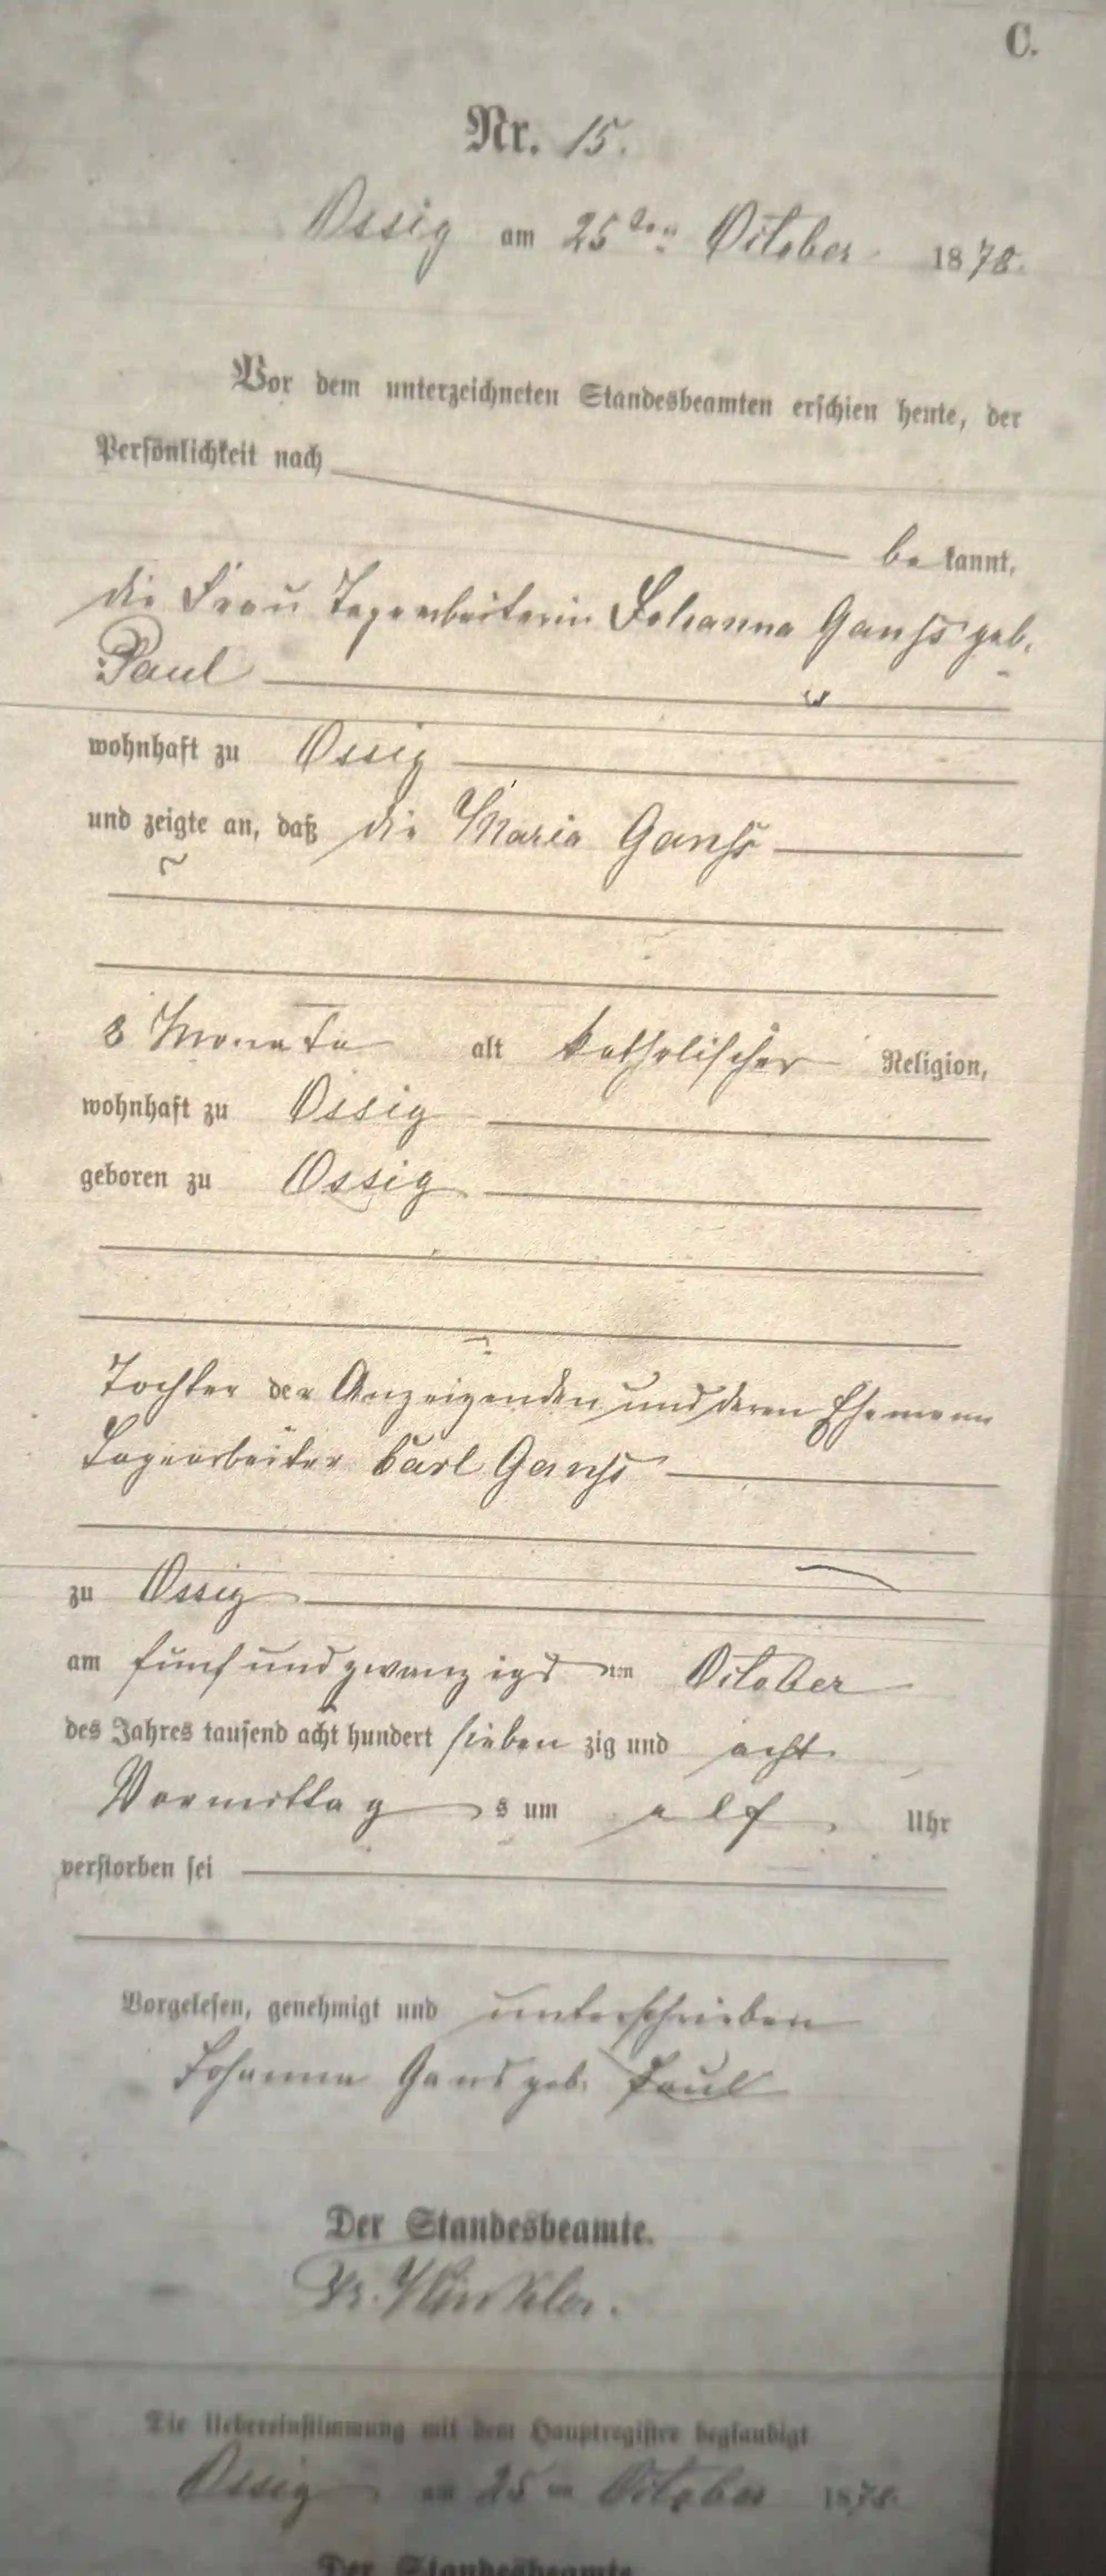 C.
Nr. 15.
Ossig am 25ten October 1878.
Vor dem unterzeichneten Standesbeamten erschien heute, der
Persönlichkeit nach
be kannt,
die Frau Tagearbeiterin Johanna Ganß geb.
Paul
wohnhaft zu Ossig
und zeigte an, daß die Maria Ganß
8 Monate alt katholischer Religion,
wohnhaft zu Ossig
geboren zu Ossig
Tochter der Anzeigenden und deren Ehemann
Tagearbeiter Carl Ganß
zu Ossig
am fünfundzwanzigsten October
des Jahres tausend acht hundert sieben zig und acht
Vormittag s um elf Uhr
verstorben sei
Vorgelesen, genehmigt und unterschrieben
Johanna Gans geb. Paul
Der Standesbeamte.
Winkler.
Die Uebereinstimmung mit dem Hauptregister beglaubigt
Ossig am 25 ten October 1878.
Der Standesbeamte